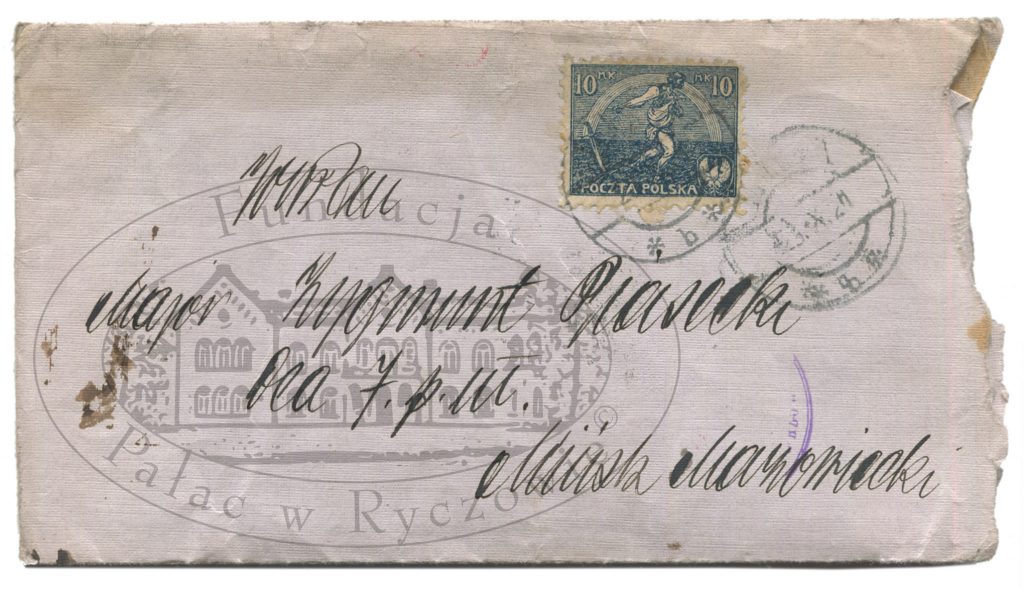 10 MK MK 10
POCZTA POLSKA
* b *
.X.21
* b *
WPan
Major Zygmunt Piasecki
Dca 7. p. uł.
Mińsk Mazowiecki
Fundacja
Pałac w Ryczowie
©